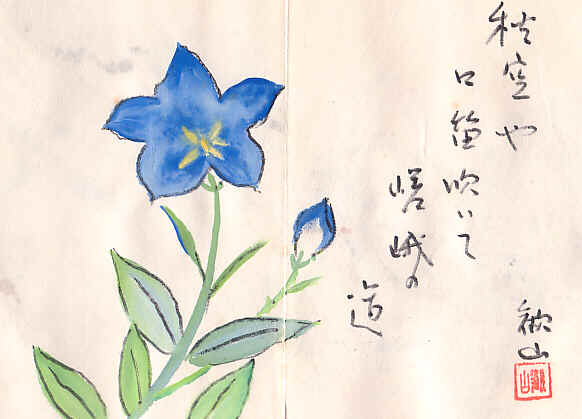 秋空や
口笛吹いて
嵯峨の
道